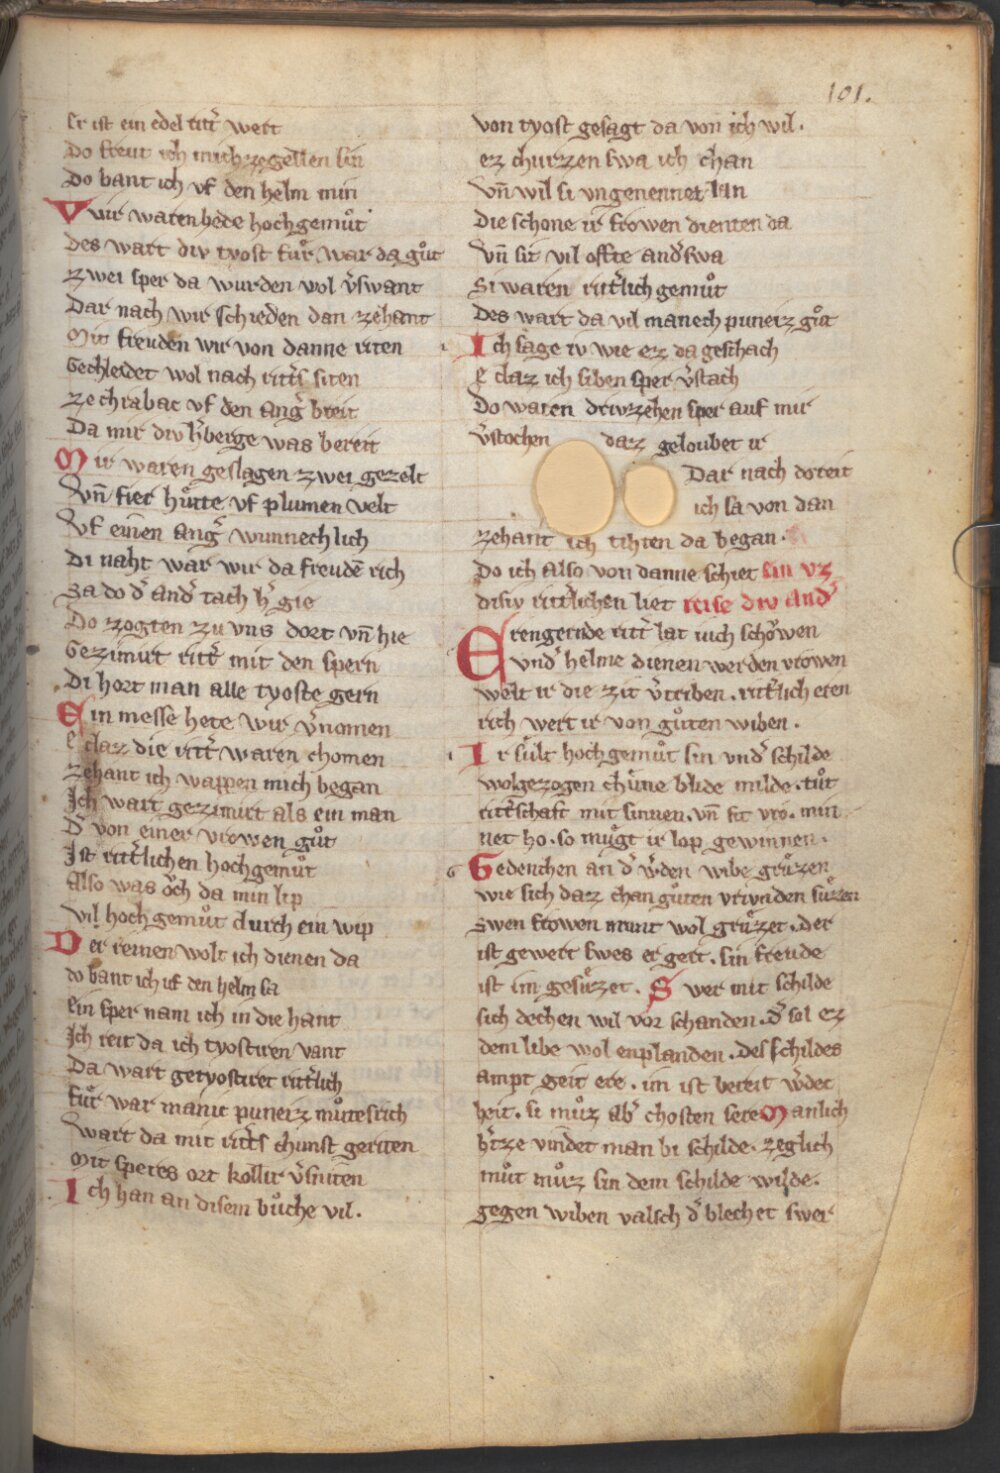 101.
Er ist ein edel ritt̄ wert
Do freut ich mich ze gesellen sin
Do bant ich vf den helm min
Wir waren bede hochgemůt
Des wart div tyost fůr war da gůt
zwei sper da wurden wol v̄swant
Dar nach wir schieden dan zehant
Mit freuden wir von danne riten
Gechleidet wol nach ritt̄s siten
ze chrabac vf den anḡ breit
Da mir div h̄berge was bereit
Mir waren geslagen zwei gezelt
Vn̄ fier hůtte vf plumen velt
Vf einen anḡ wunnechlich
Di naht war wir da freudē rich
Sa do d̄ and̄ tach h̄ gie
Do zogten zu vns dort vn̄ hie
Gezimirt ritt̄ mit den spern
Di hort man alle tyoste gern
Ein messe hete wir v̄nomen
e daz die ritt̄ waren chomen
zehant ich wappen mich began
Ich wart gezimirt als ein man
D̄ von einer vrowen gůt
Ist ritt̄lichen hochgemůt
Also was ǒch da min lip
Vil hochgemůt durch ein wip
Der reinen wolt ich dienen da
do bant ich vf den helm sa
ein sper nam ich in die hant
Ich reit da ich tyostiren vant
Da wart getyostiret ritt̄lich
fůr war manic puneiz můtesrich
Wart da mit ritt̄s chunst geriten
Mit speres ort kollir v̄sniten
Ich han an disem bůche vil.
von tyost gesagt da von ich wil.
ez churzen swa ich chan
Vn̄ wil si vngenennet lan
Die schone ir frowen dienten da
Vn̄ sit vil offte and̄swa
Si waren ritt̄lich gemůt
Des wart da vil manech puneiz gůt
Ich sage iv wie ez da geschach
e daz ich siben sper v̄stach
Do waren driwzehen sper auf mir
v̄stochen daz geloubet ir
Dar nach do reit
ich sa von dan
zehant ich tihten da began.
Do ich also von danne schiet sin vz
disiv ritt̄lichen liet reise div and̄
Erengernde ritt̄ lat iuch schǒwen
vnd̄ helme dienen werden vrowen
welt ir die zit v̄triben. ritt̄lich eren
rich wert ir von gůten wiben.
Ir sůlt hochgemůt sin vnd̄ schilde
wolgezogen chůne blide milde. tůt
ritt̄schaft mit sinnen. vn̄ sit vro. min
net ho. so můgt ir lop gewinnen.
Gedenchen an d̄ w̄den wibe grůzen
wie sich daz chan gůten vriunden sůzen
Swen frowen munt wol grůzet. Der
ist gewert swes er gert. sin freude
ist im gesůzet. Swer mit schilde
sich dechen wil vor schanden. d̄ sol ez
dem libe wol enplanden. Des schildes
ampt geit ere. im ist bereit w̄dec
heit. si můz ab̄ chosten sere Manlich
h̄tze vindet man bi schilde. zeglich
můt můz sin dem schilde wilde.
gegen wiben valsch d̄ blechet swer